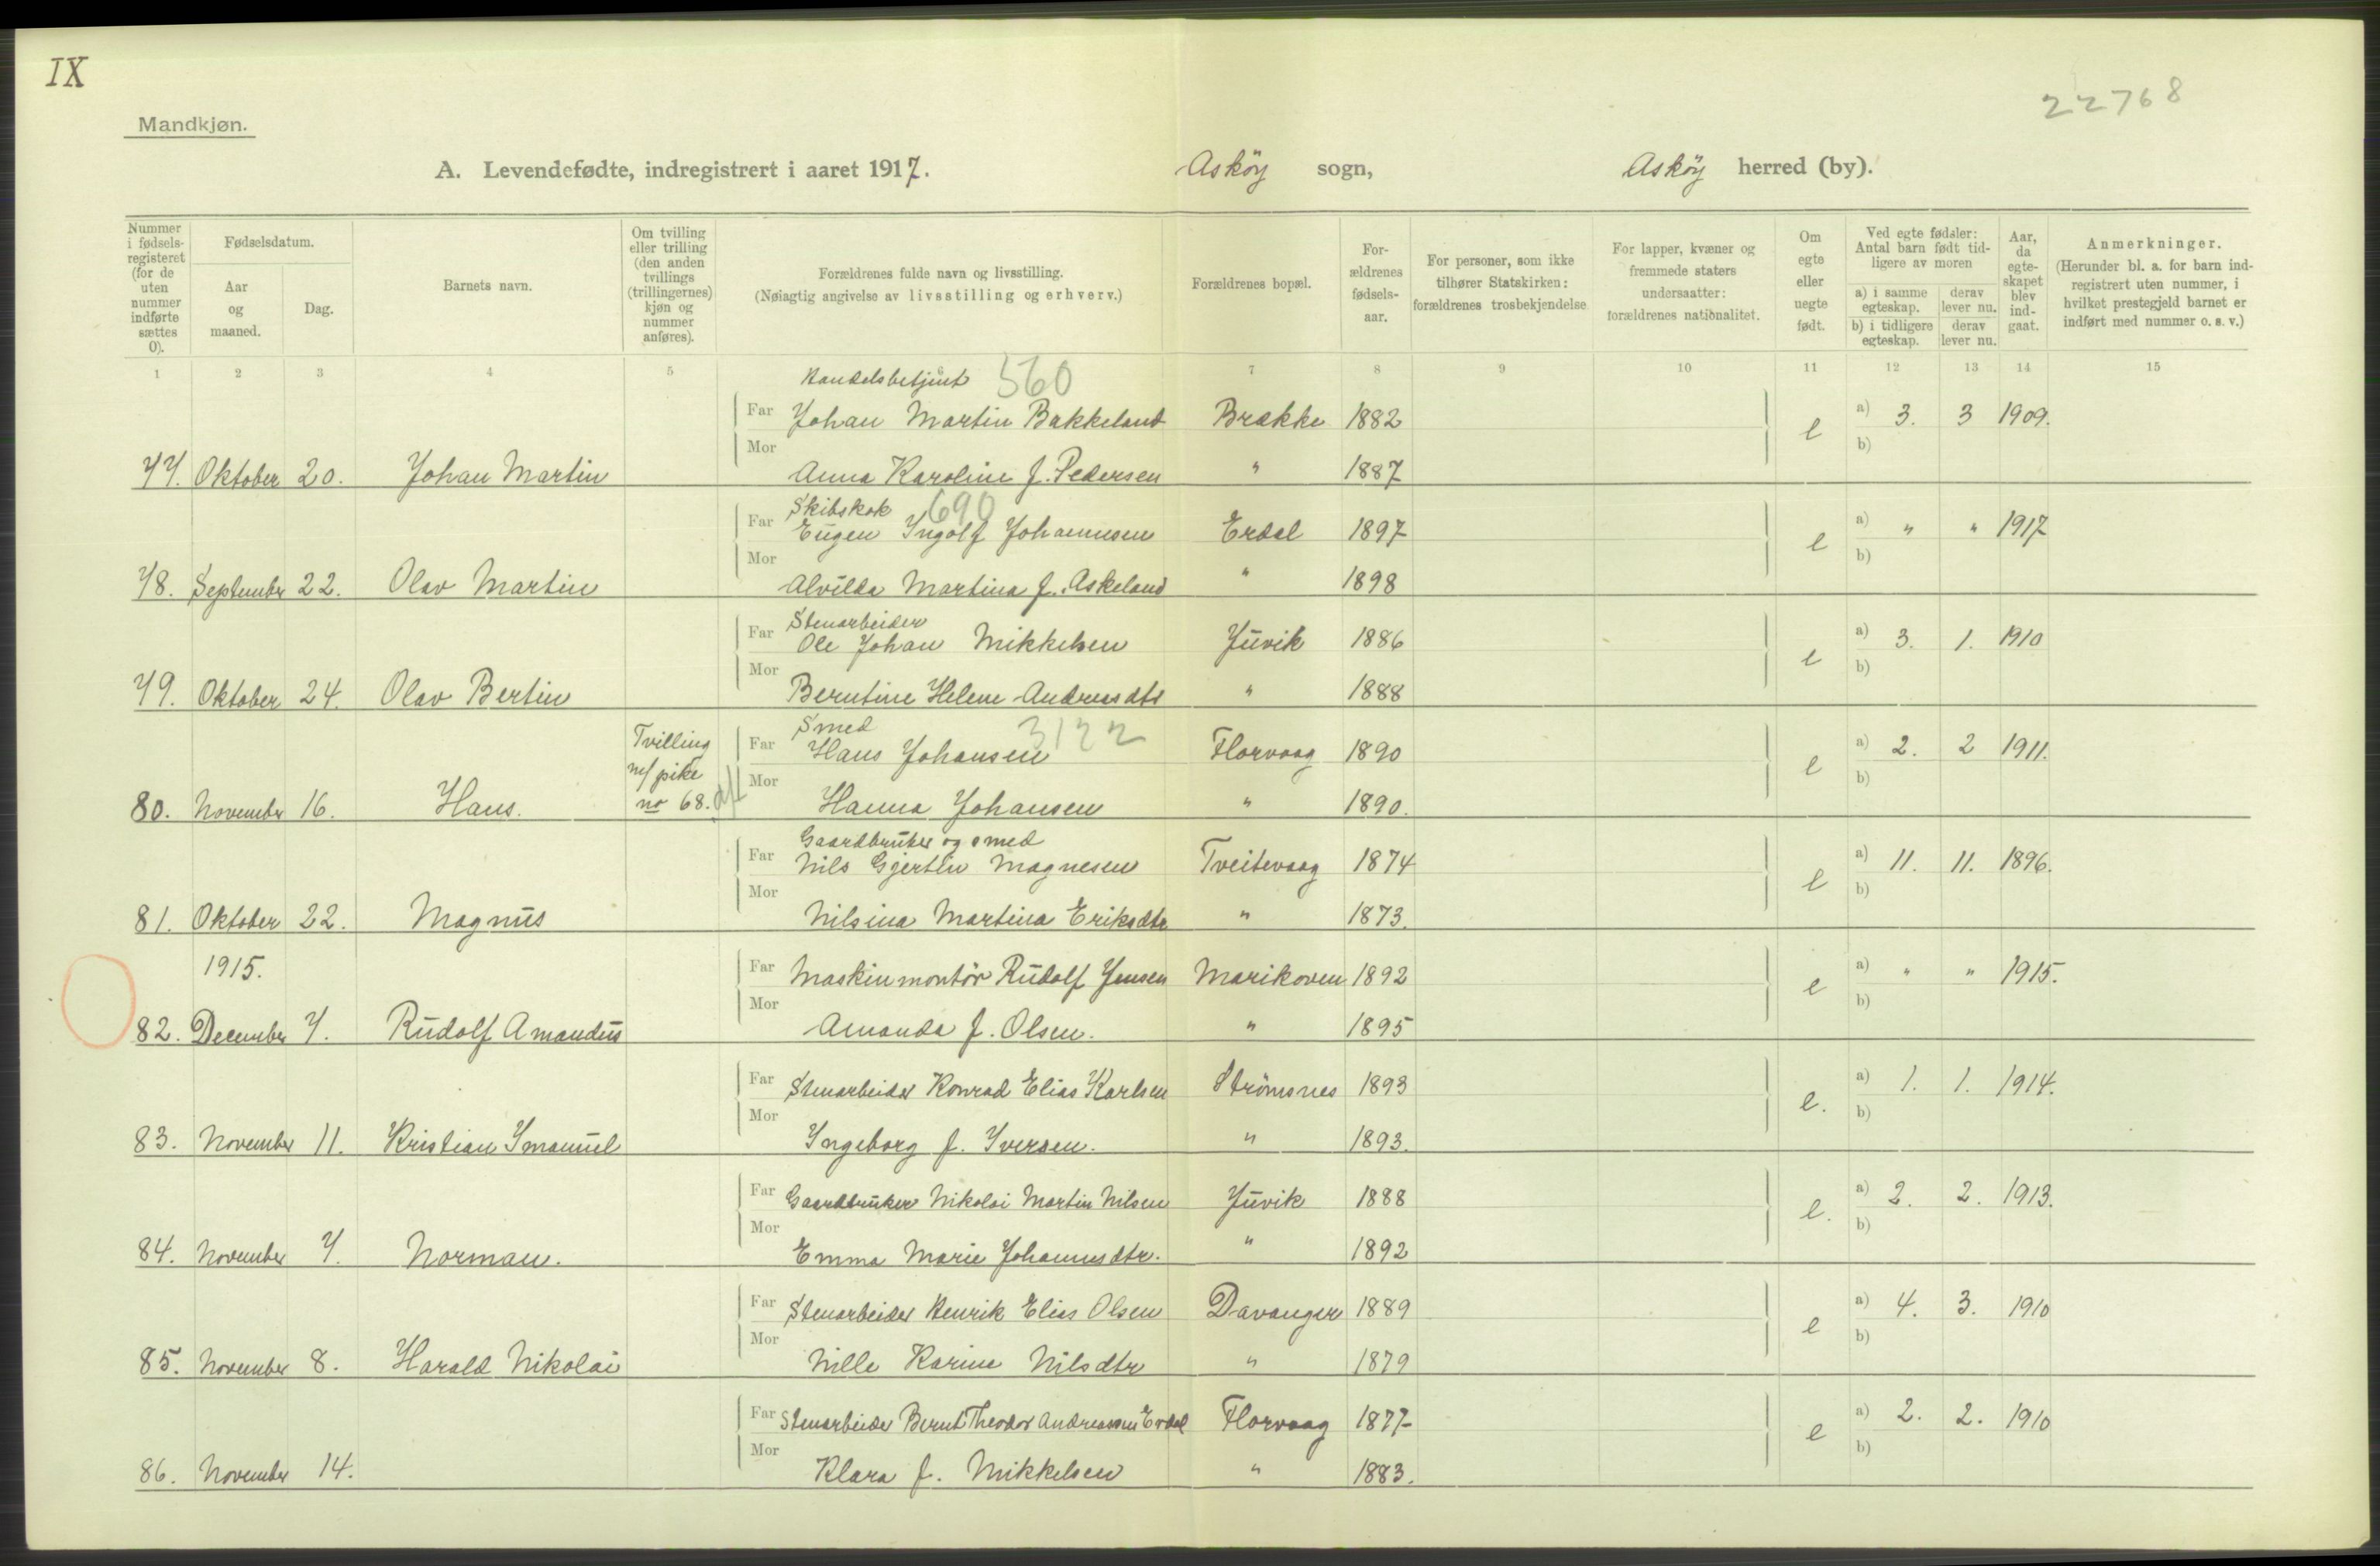 IX
22768
Mandkjøn.
A. Levendefødte, indregistrert i aaret 1917. Asköy sogn, Asköy herred (by).
Nummer i fødsels-registeret (for de uten nummer indførte sættes 0).
Fødselsdatum.
Aar og maaned.
Dag.
Barnets navn.
Om tvilling eller trilling (den anden tvillings (trillingernes) kjøn og nummer anføres).
Forældrenes fulde navn og livsstilling.
(Nøiagtig angivelse av livsstilling og erhverv.)
Forældrenes bopæl.
For-ældrenes fødsels-aar.
For personer, som ikke tilhører Statskirken: forældrenes trosbekjendelse
For lapper, kvæner og fremmede staters undersaatter: forældrenes nationalitet.
Om egte eller uegte født.
Ved egte fødsler: Antal barn født tid-ligere av moren
a) i samme egteskap. derav lever nu.
b) i tidligere egteskap. derav lever nu.
Aar, da egte-skapet blev ind-gaat.
Anmerkninger.
(Herunder bl. a. for barn ind-registrert uten nummer, i hvilket prestegjeld barnet er indført med nummer o. s. v.)
1 2 3 4 5 6 7 8 9 10 11 12 13 14 15
Handelsbetjent 560
Far Johan Martin Bakkeland Brække 1882 e a) 3. 3 1909.
Mor b)
77. Oktober 20. Johan Martin Anna Karoline f. Pedersen " 1887
Skibskok 690
Far Eugen Ingolf Johannesen Erdal 1897 e a) " " 1917
Mor b)
78. September 22. Olav Martin Alvilda Martina f. Askeland " 1898
Stenarbeider
Far Ole Johan Mikkelsen Juvik 1886 e a) 3. 1. 1910
Mor b)
79. Oktober 24. Olav Bertin Berntine Helene Andreasdtr " 1888
Smed 3122
Tvilling m/ pike no 68.
Far Hans Johansen Florvaag 1890 e a) 2. 2 1911.
Mor b)
80. November 16. Hans. Hanna Johansen " 1890.
Gaardbruker og smed
Far Nils Gjertin Magnesen Tveitevaag 1874 e a) 11. 11. 1896.
Mor b)
81. Oktober 22. Magnus Nilsina Martina Eriksdtr " 1873.
1915.
Far Maskinmontör Rudolf Jensen Marikoven 1892 e a) " " 1915.
Mor b)
82. December 7. Rudolf Amandus Amanda f. Olsen. " 1895
Far Stenarbeider Konrad Elias Karlsen Strömsnes 1893 e. a) 1. 1. 1914.
Mor b)
83. November 11. Kristian Imanuel Ingeborg f. Iversen. " 1893.
Far Gaardbruker Nikolai Martin Nilsen Juvik 1888 e. a) 2. 2. 1913.
Mor b)
84. November 7. Norman. Emma Marie Johannesdtr. " 1892
Far Stenarbeider Henrik Elias Olsen Davanger 1889 e a) 4. 3. 1910
Mor b)
85. November 8. Harald Nikolai Nille Karine Nilsdtr " 1879
Far Stenarbeider Bernt Theodor Andreassen Erdal Florvaag 1877 e a) 2. 2. 1910
Mor b)
86. November 14. Klara f. Mikkelsen " 1883.